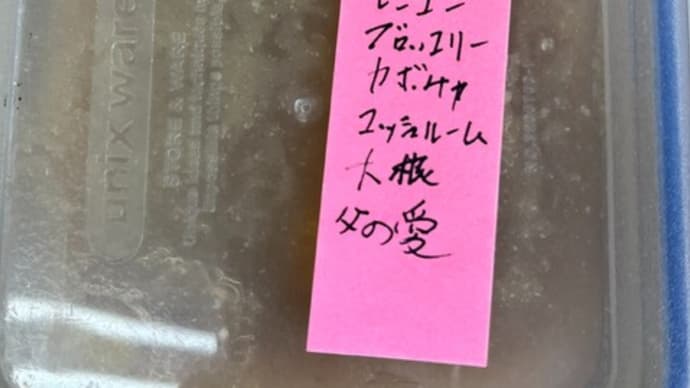 ブロッコリー
カボチャ
マッシュルーム
大根
父の愛
unix ware
STORE & WARE